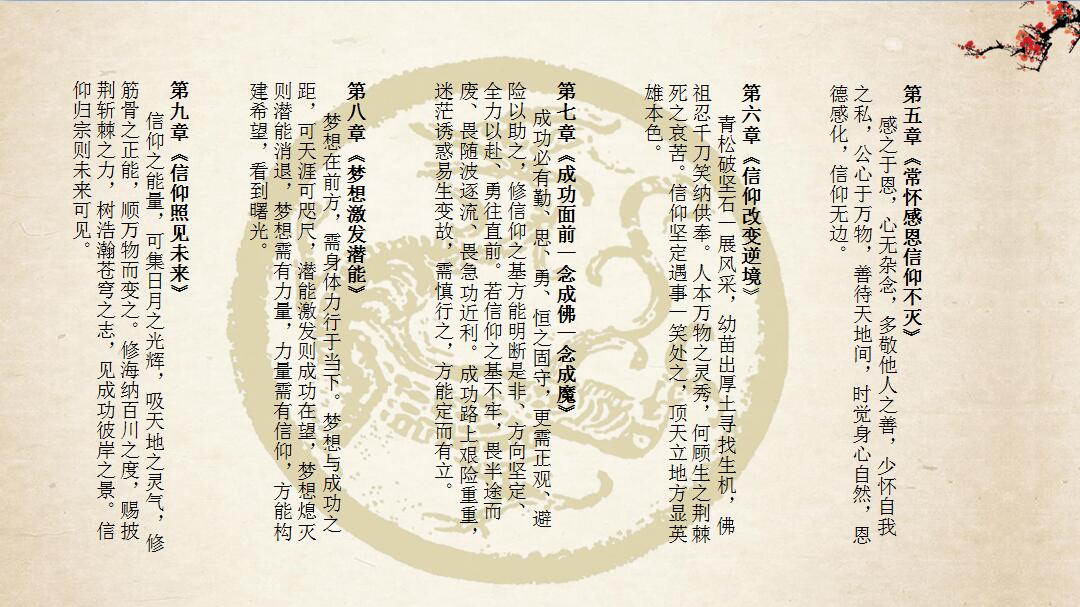 第五章《常怀感恩信仰不灭》
感之于恩，心无杂念，多敬他人之善，少怀自我
之私，公心于万物，善待天地间，时觉身心自然，恩
德感化，信仰无边。
第六章《信仰改变逆境》
青松破坚石一展风采，幼苗出厚土寻找生机，佛
祖忍千刀笑纳供奉。人本万物之灵秀，何顾生之荆棘
死之哀苦。信仰坚定遇事一笑处之，顶天立地方显英
雄本色。
第七章《成功面前一念成佛一念成魔》
成功必有勤、思、勇、恒之固守，更需正观、避
险以助之，修信仰之基方能明断是非、方向坚定、
全力以赴、勇往直前。若信仰之基不牢，畏半途而
废、畏随波逐流、畏急功近利。成功路上艰险重重，
迷茫诱惑易生变故，需慎行之，方能定而有立。
第八章《梦想激发潜能》
梦想在前方，需身体力行于当下。梦想与成功之
距，可天涯可咫尺，潜能激发则成功在望，梦想熄灭
则潜能消退，梦想需有力量，力量需有信仰，方能构
建希望，看到曙光。
第九章《信仰照见未来》
信仰之能量，可集日月之光辉，吸天地之灵气，修
筋骨之正能，顺万物而变之。修海纳百川之度，赐披
荆斩棘之力，树浩瀚苍穹之志，见成功彼岸之景。信
仰归宗则未来可见。